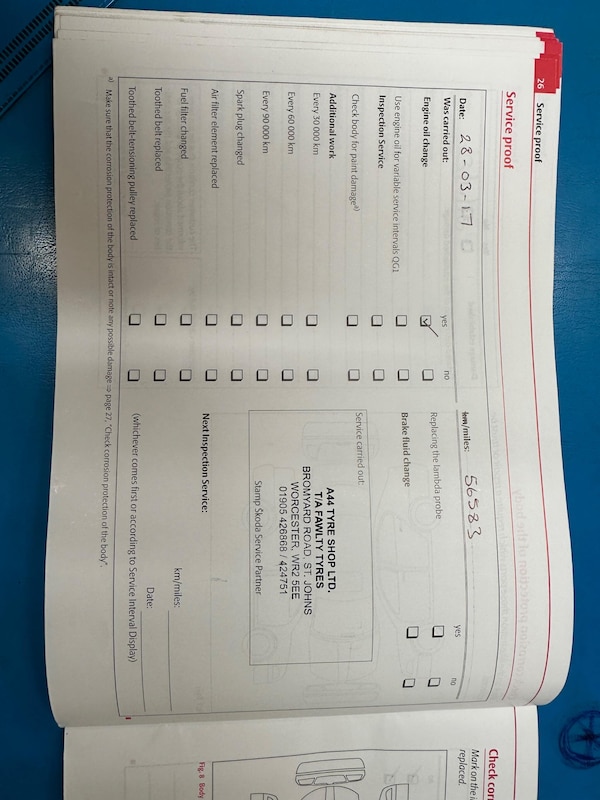 26 Service proof
Service proof
Date: 28-03-17
km/miles: 56583
Was carried out:
yes no
yes no
Engine oil change
Replacing the lambda probe
Use engine oil for variable service intervals QG1
Brake fluid change
Inspection Service
Check body for paint damage a)
Service carried out:
Additional work
Every 30 000 km
Every 60 000 km
Every 90 000 km
Spark plug changed
Air filter element replaced
Fuel filter changed
Toothed belt replaced
Toothed belt-tensioning pulley replaced
A44 TYRE SHOP LTD.
T/A FAWLTY TYRES
BROMYARD ROAD, ST. JOHNS
WORCESTER, WR2 5EE
01905 426868 / 424751
Stamp Škoda Service Partner
Next Inspection Service:
km/miles:
Date:
(whichever comes first or according to Service Interval Display)
a) Make sure that the corrosion protection of the body is intact or note any possible damage ⇒ page 27, "Check corrosion protection of the body".
Check cor
Mark on the
replaced.
Fig. 8 Body